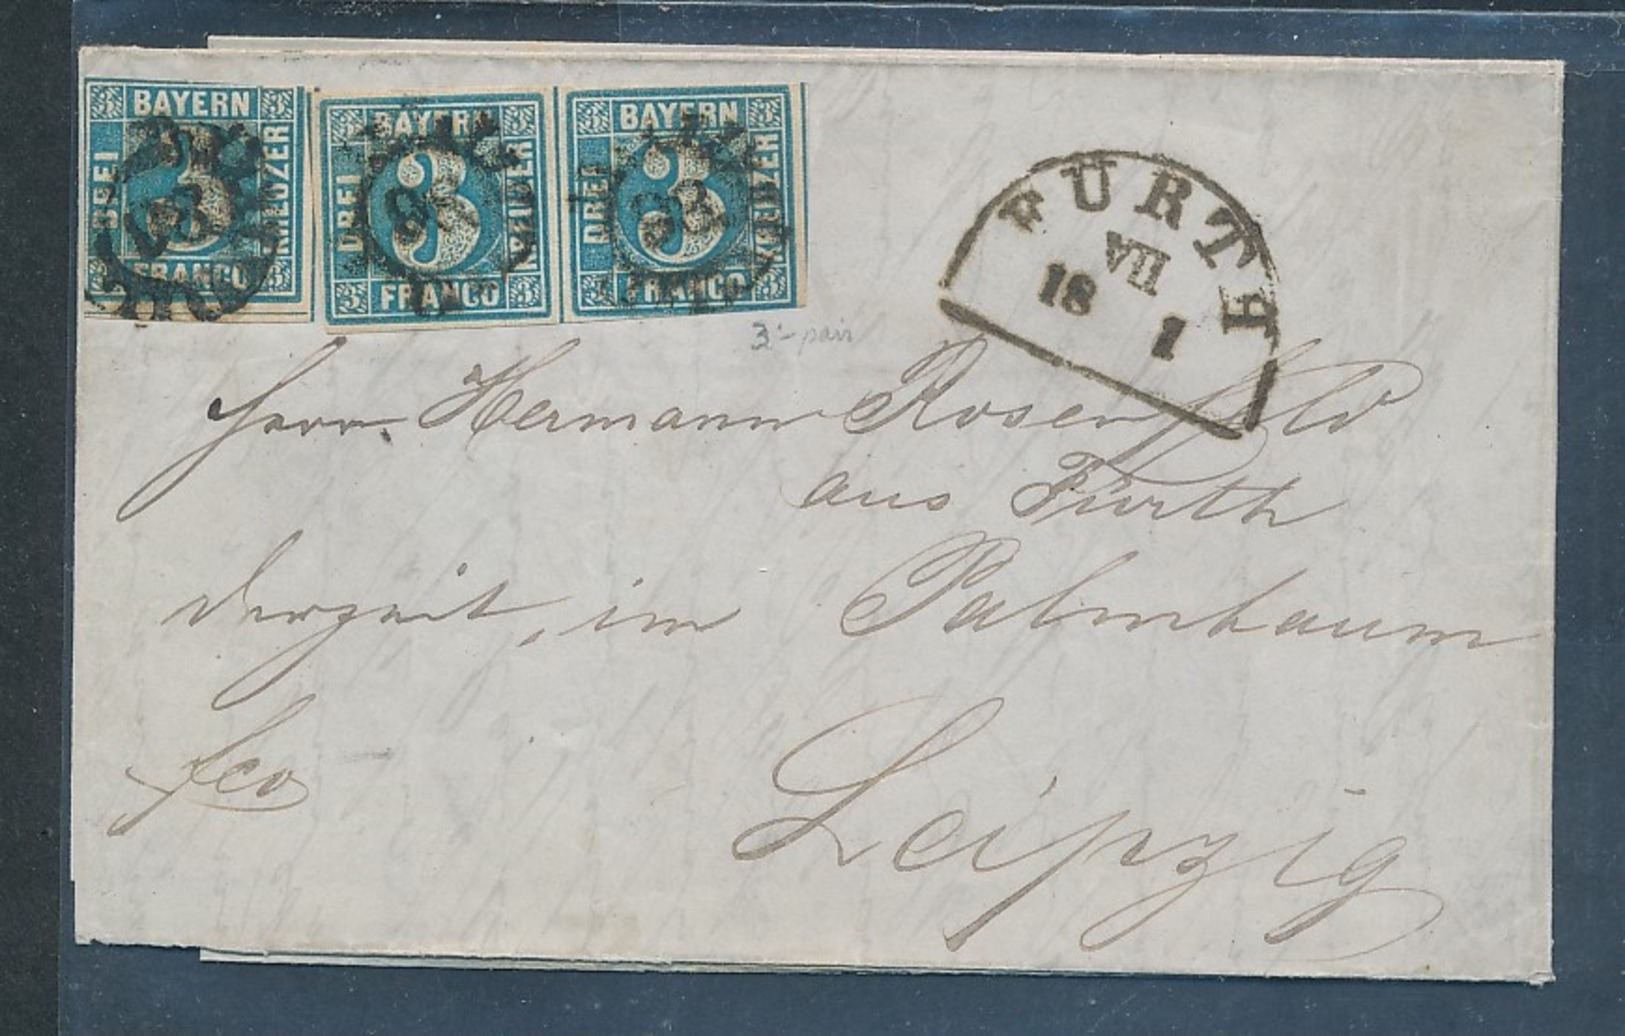 BAYERN
3 3
DREI 3 KREUZER
FRANCO
3 3
BAYERN
3 3
DREI 3 KREUZER
FRANCO
3 3
BAYERN
3 3
DREI 3 KREUZER
FRANCO
3 3
FÜRTH
VII
18 1
3 - pair
Herrn Hermann Rosenfeld
aus Fürth
derzeit, im Palmbaum
fco
Leipzig